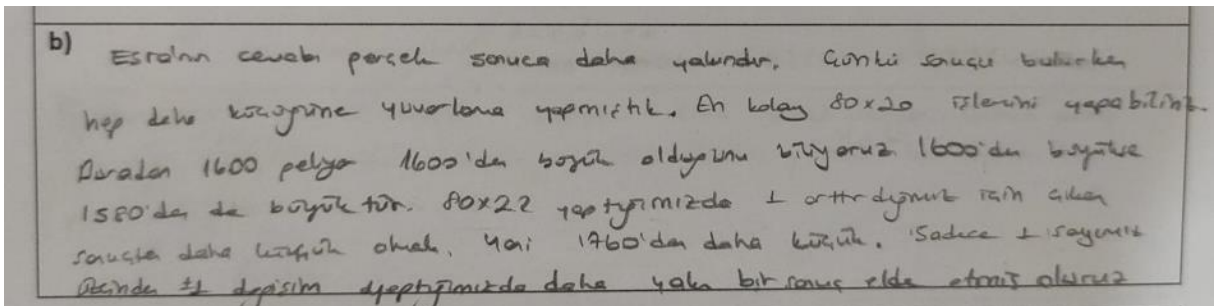 b) Esra'nın cevabı gerçek sonuca daha yakındır. Çünkü sonucu bulurken
hep daha küçüğüne yuvarlama yapmıştık. En kolay 80x20 işlemini yapabiliriz.
Buradan 1600 geliyor 1600'den büyük olduğunu biliyoruz 1600'den büyükse
1580'den de büyüktür. 80x22 yaptığımızda 1 arttırdığımız için çıkan
sonuçtan daha küçük olmalı. Yani 1760'dan daha küçük. Sadece 1 sayımız
üzerinden ±1 değişim yaptığımızda daha yakın bir sonuç elde etmiş oluruz